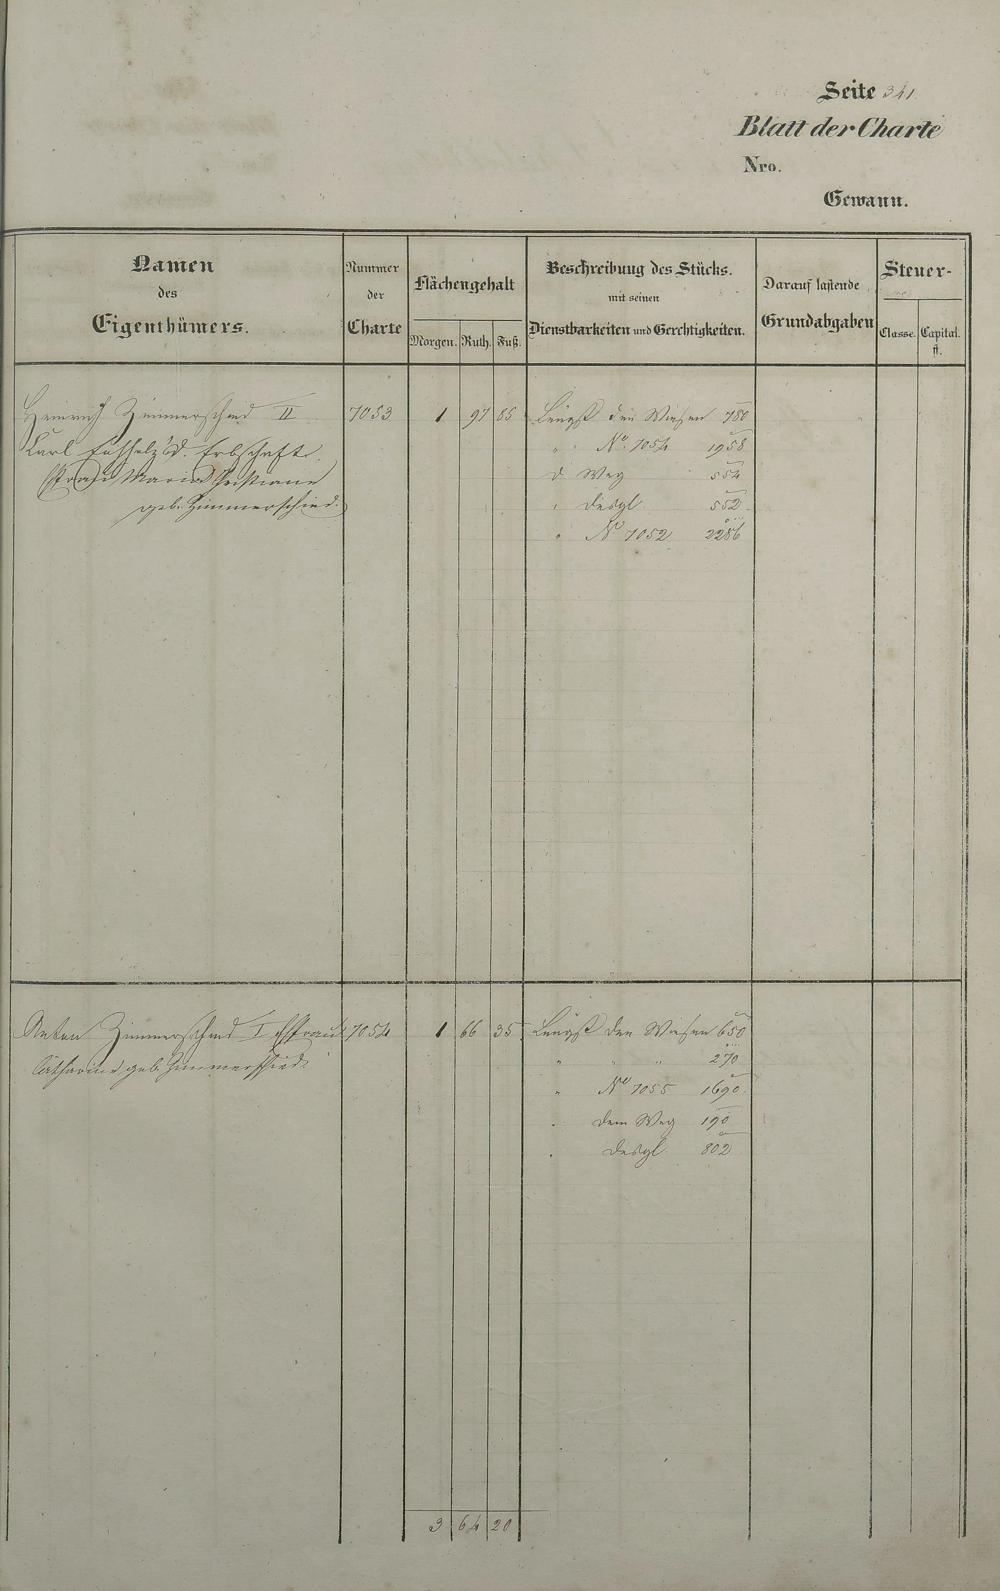 Seite 341
Blatt der Charte
Nro.
Gewann.
Namen des Eigenthümers.
Nummer der Charte
Flächengehalt
Morgen. Ruth. Fuß.
Beschreibung des Stücks. mit seinen Dienstbarkeiten und Gerechtigkeiten.
Darauf lastende Grundabgaben
Steuer-
Classe. Capital. fl.
Heinrich Zimmerschied II 7053 1 97 85 Längst den Wiesen 750
Karl d. Erbschaft " No. 7054 1958
Maria Christiane d Weg 554
geb. Zimmerschied. " desgl. 552
" No 7052 2286
Anton Zimmerschied I Ehefrau 7054 1 66 35 Längst den Wiesen 650
Catharine geb. Zimmerschied. " " " 270
" No 7055 1690
" dem Weg 190
" desgl. 802
3 64 20